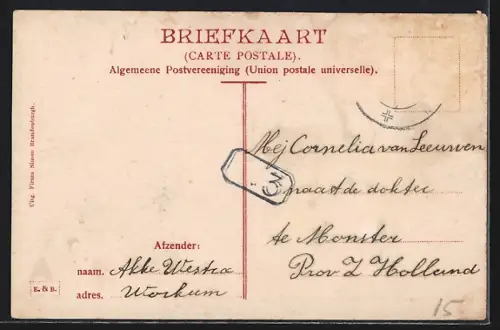 BRIEFKAART
(CARTE POSTALE).
Algemeene Postvereeniging (Union postale universelle).
Uitg. Firma Simon Brandenburgh.
Mej Cornelia van Leeuwen
naast de dokter
te Monster
Prov Z Holland
Afzender:
naam. Akke Westra
adres. Workum
E. & B.
15